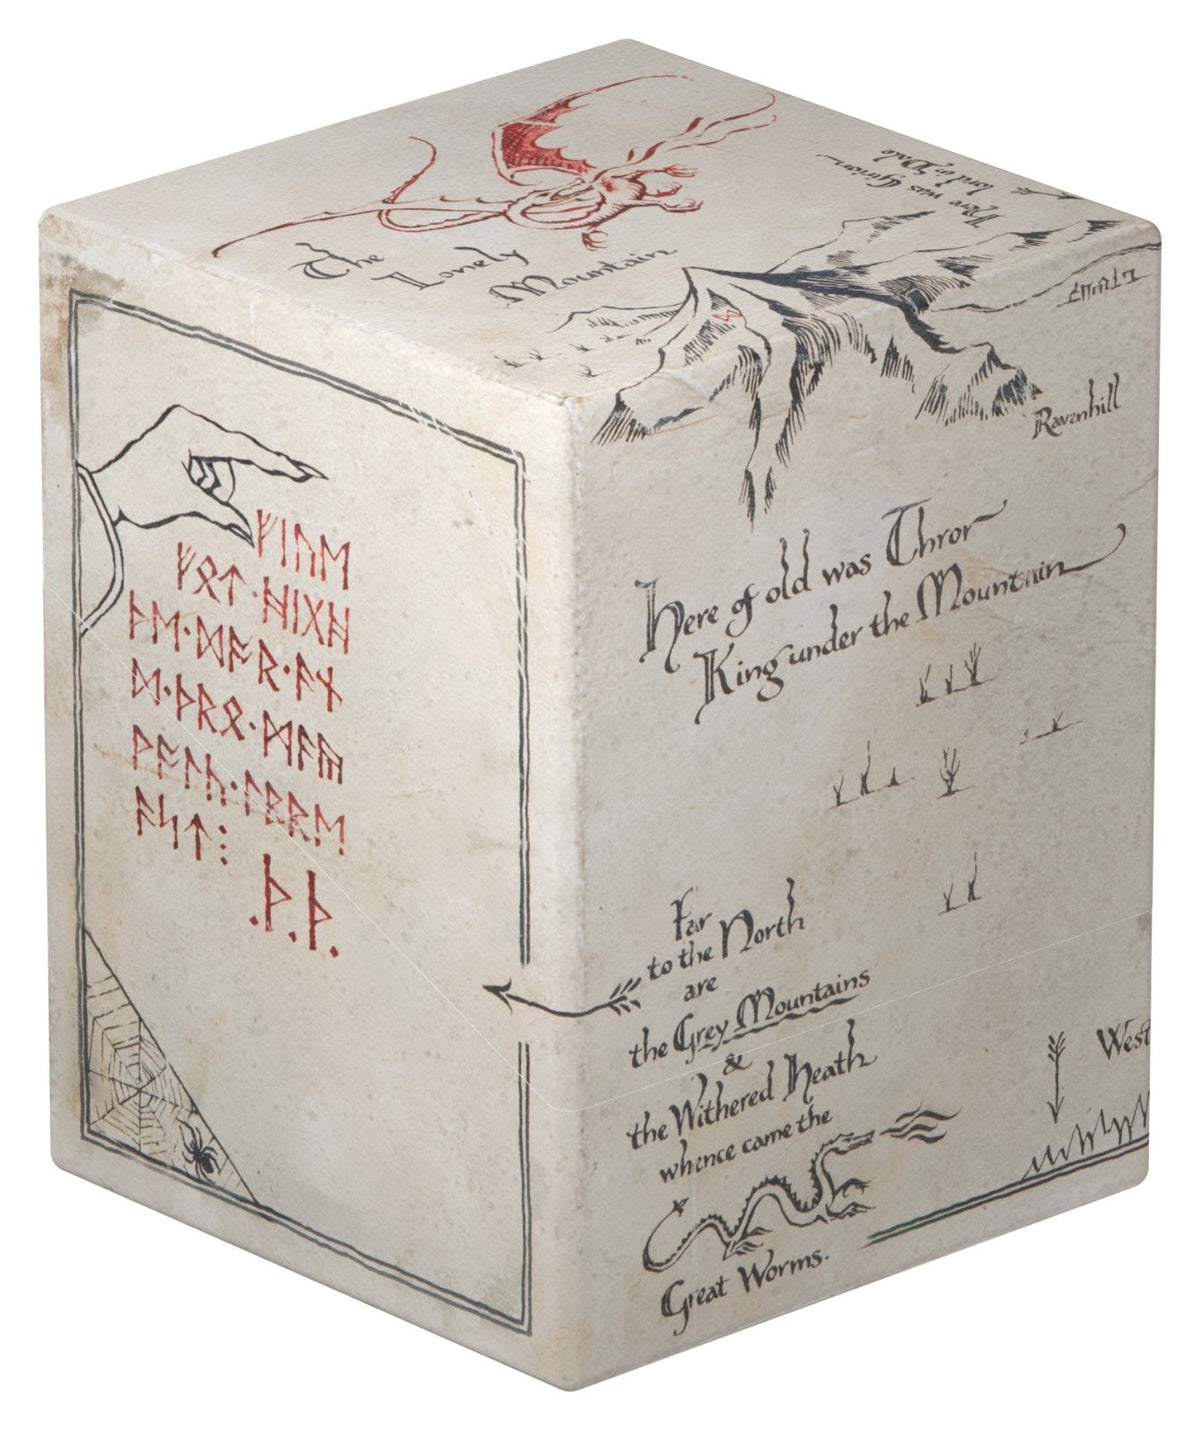 The
Lonely
Mountain
Here was Girion
lord in Dale
Ravenhill
ᚠᛁᚢᛖ
ᚠᚩᛏ᛫ᚻᛁᚷᚻ
ᚦᛖ᛫ᛞᚩᚱ᛫ᚫᚾ
ᛞ᛫ᚦᚱᛟ᛫ᛗᚫᚣ
ᚹᚫᛚᚳ᛫ᚫᛒᚱᛖ
ᚫᛋᛏ⁝
᛫ᚦ᛫ᚦ᛫
Here of old was Thror
King under the Mountain
Far
to the North
are
the Grey Mountains
&
the Withered Heath
whence came the
Great Worms.
West